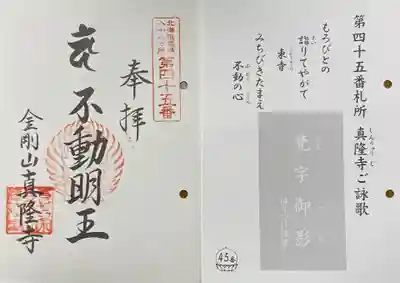 第四十五番札所 真隆寺・ご詠歌
しんりゅうじ
もろびとの
詣りてやがて
まい
来寺
みちびきたまえ
不動の心
ふどう こころ
梵字御影
45番
北海道霊場
八十八ヶ所
第四十五番
奉拝
不動明王
金剛山真隆寺